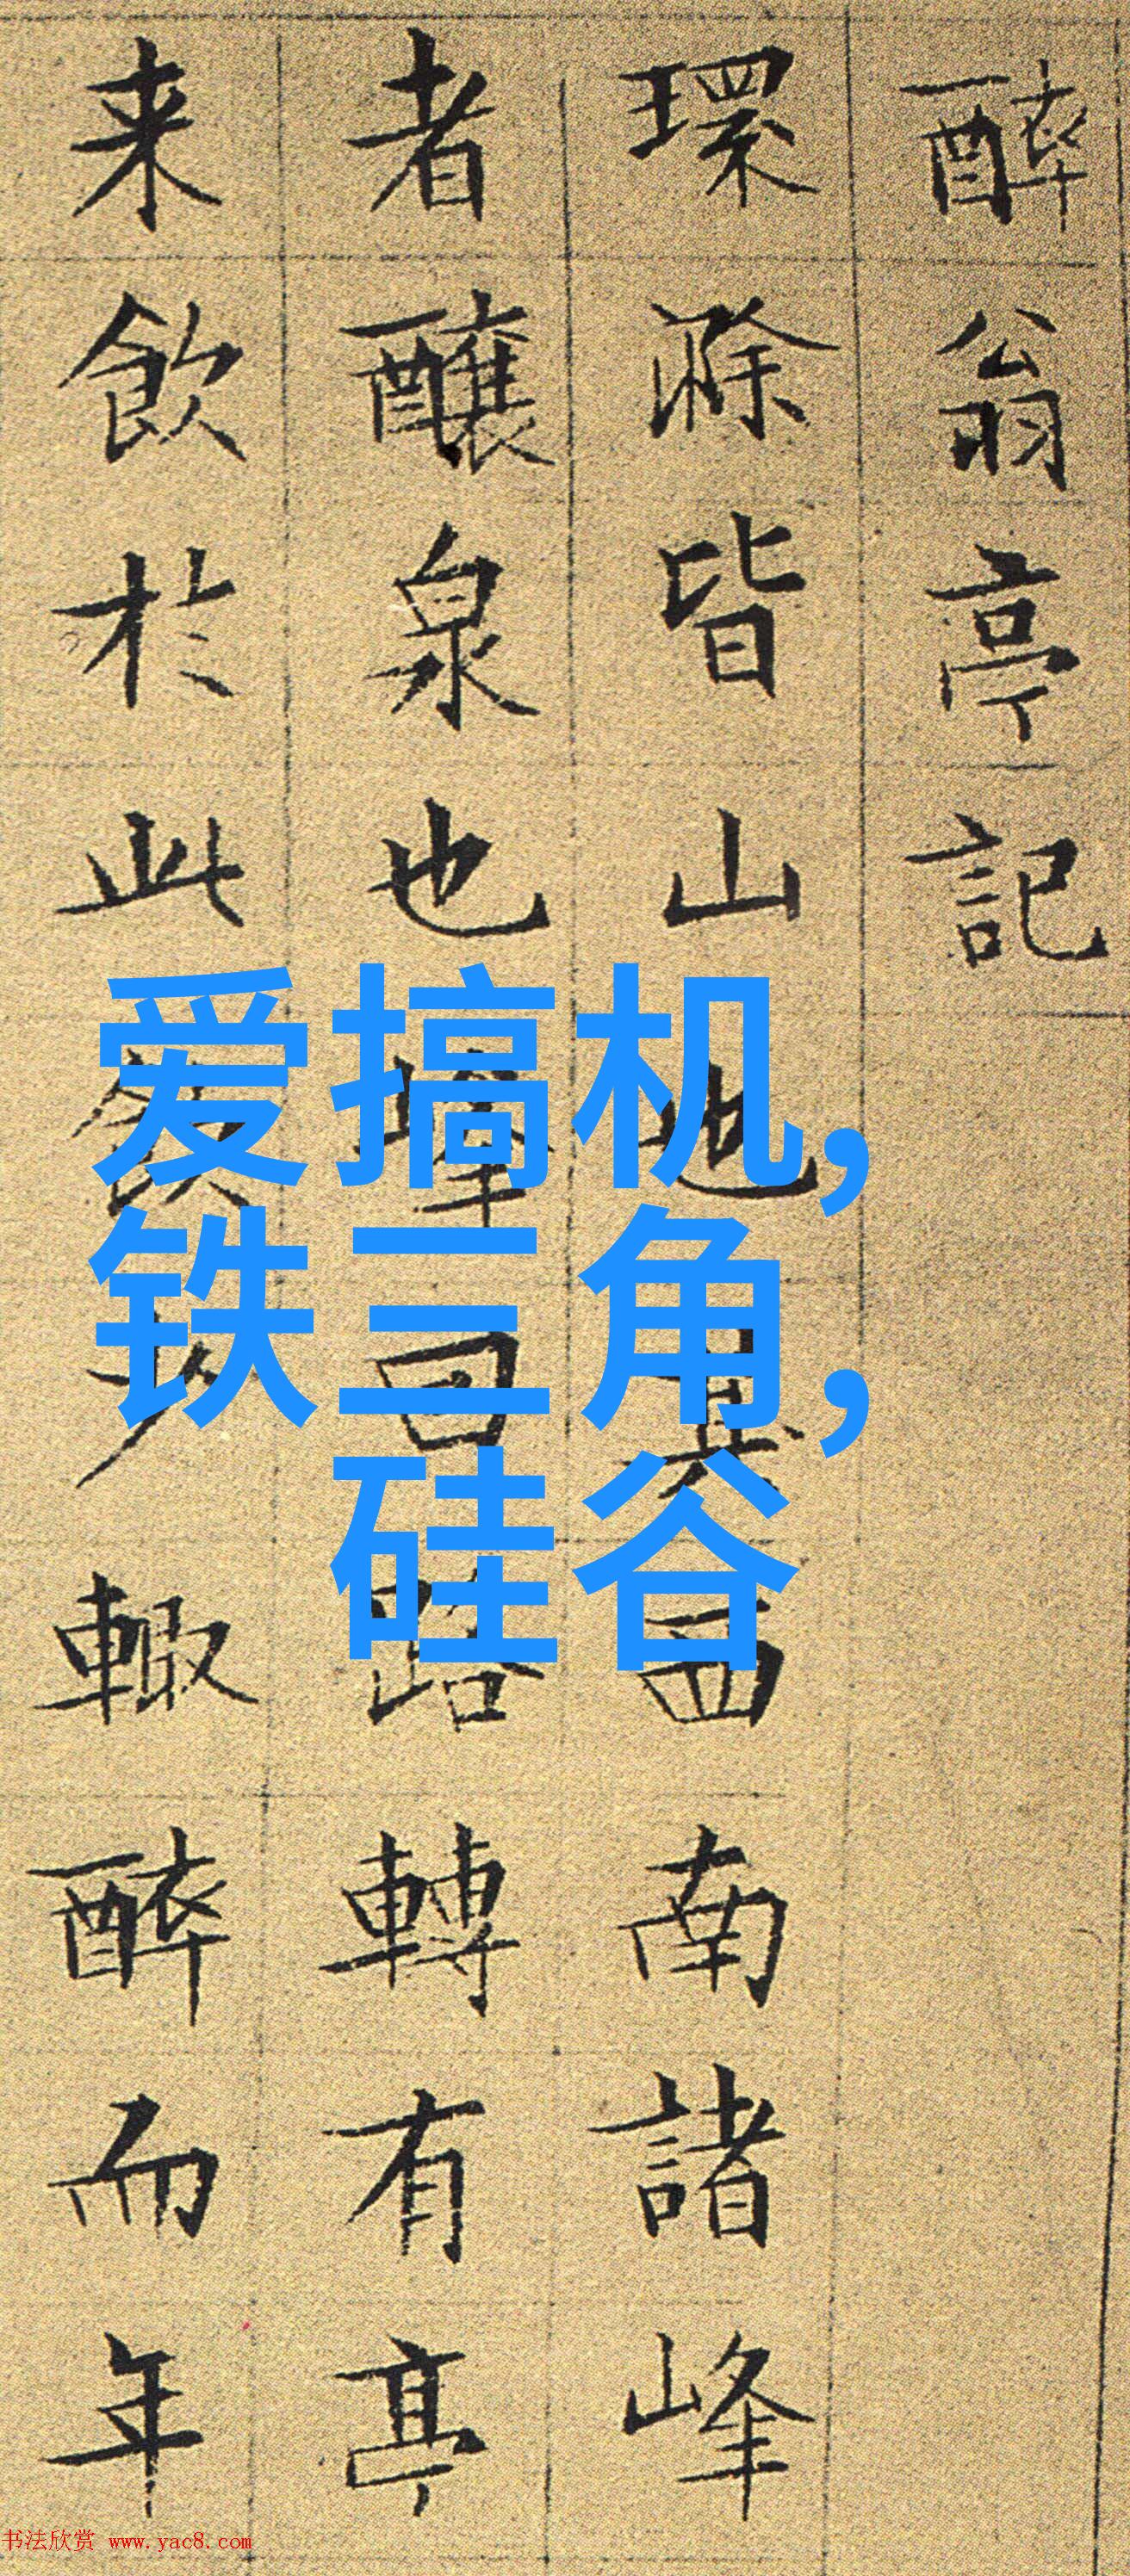 醉翁亭記
環滁皆山也其西南諸峰
者釀泉也峰回路轉有亭
来飲於此飲少輙醉而年
爱搞机,
铁三角,
硅谷
书法欣赏 www.yac8.com